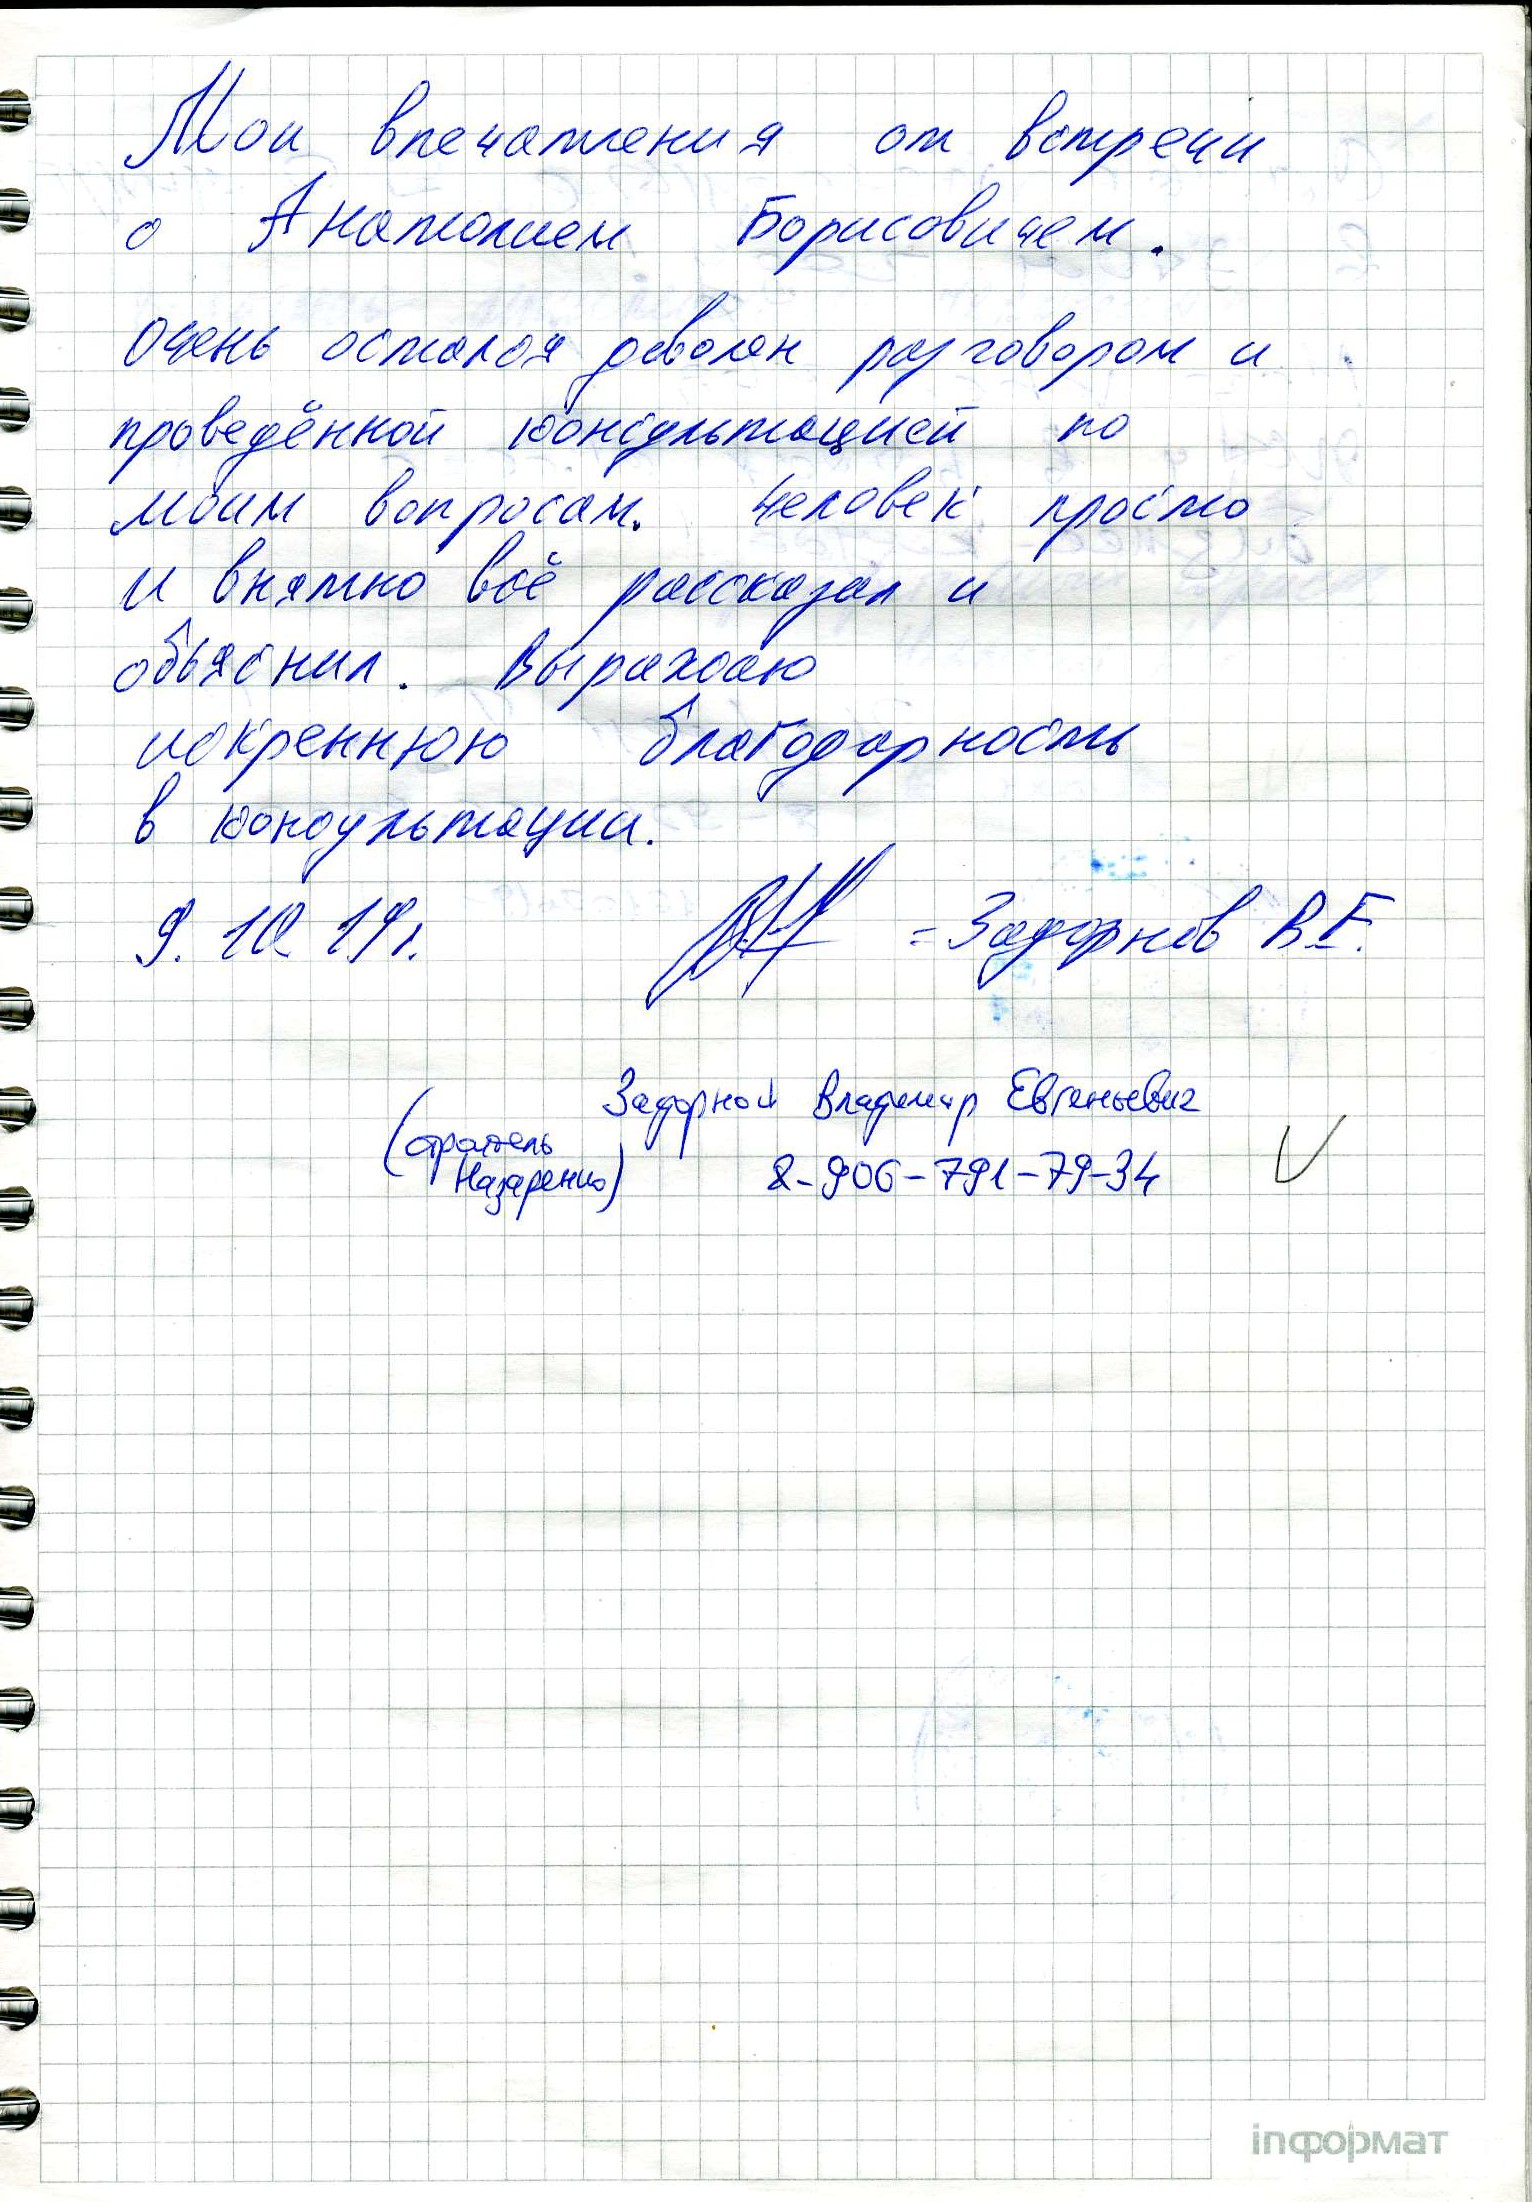 Мои впечатления от встречи
с Анатолием Борисовичем.
Очень остался доволен разговором и
проведённой консультацией по
моим вопросам. Человек просто
и внятно всё рассказал и
объяснил. Выражаю
искреннюю благодарность
в консультации.
9. 10 19г. = Задорнов В.Е.
Владимир Евгеньевич
(строитель
Назаренко) 8-906-791-79-34
inформат